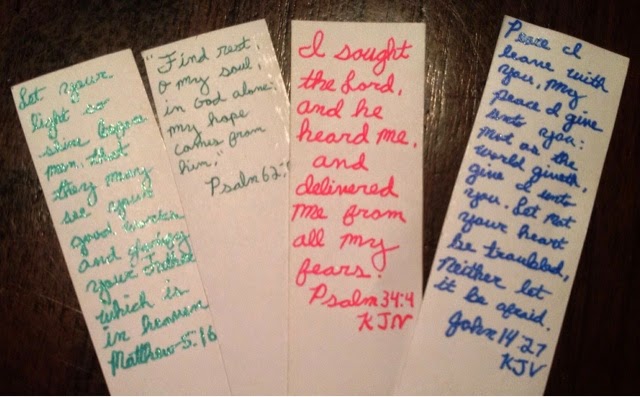 Let your
light so
shine before
men, that
they may
see your
good works
and glorify
your Father
which is
in heaven
Matthew 5:16
"Find rest,
O my soul,
in God alone:
my hope
comes from
him."
Psalm 62:
I sought
the Lord,
and he
heard me,
and
delivered
me from
all my
fears.
Psalm 34:4
KJV
Peace I
leave with
you, my
peace I give
unto you:
not as the
world giveth,
give I unto
you. Let not
your heart
be troubled,
neither let
it be afraid.
John 14:27
KJV